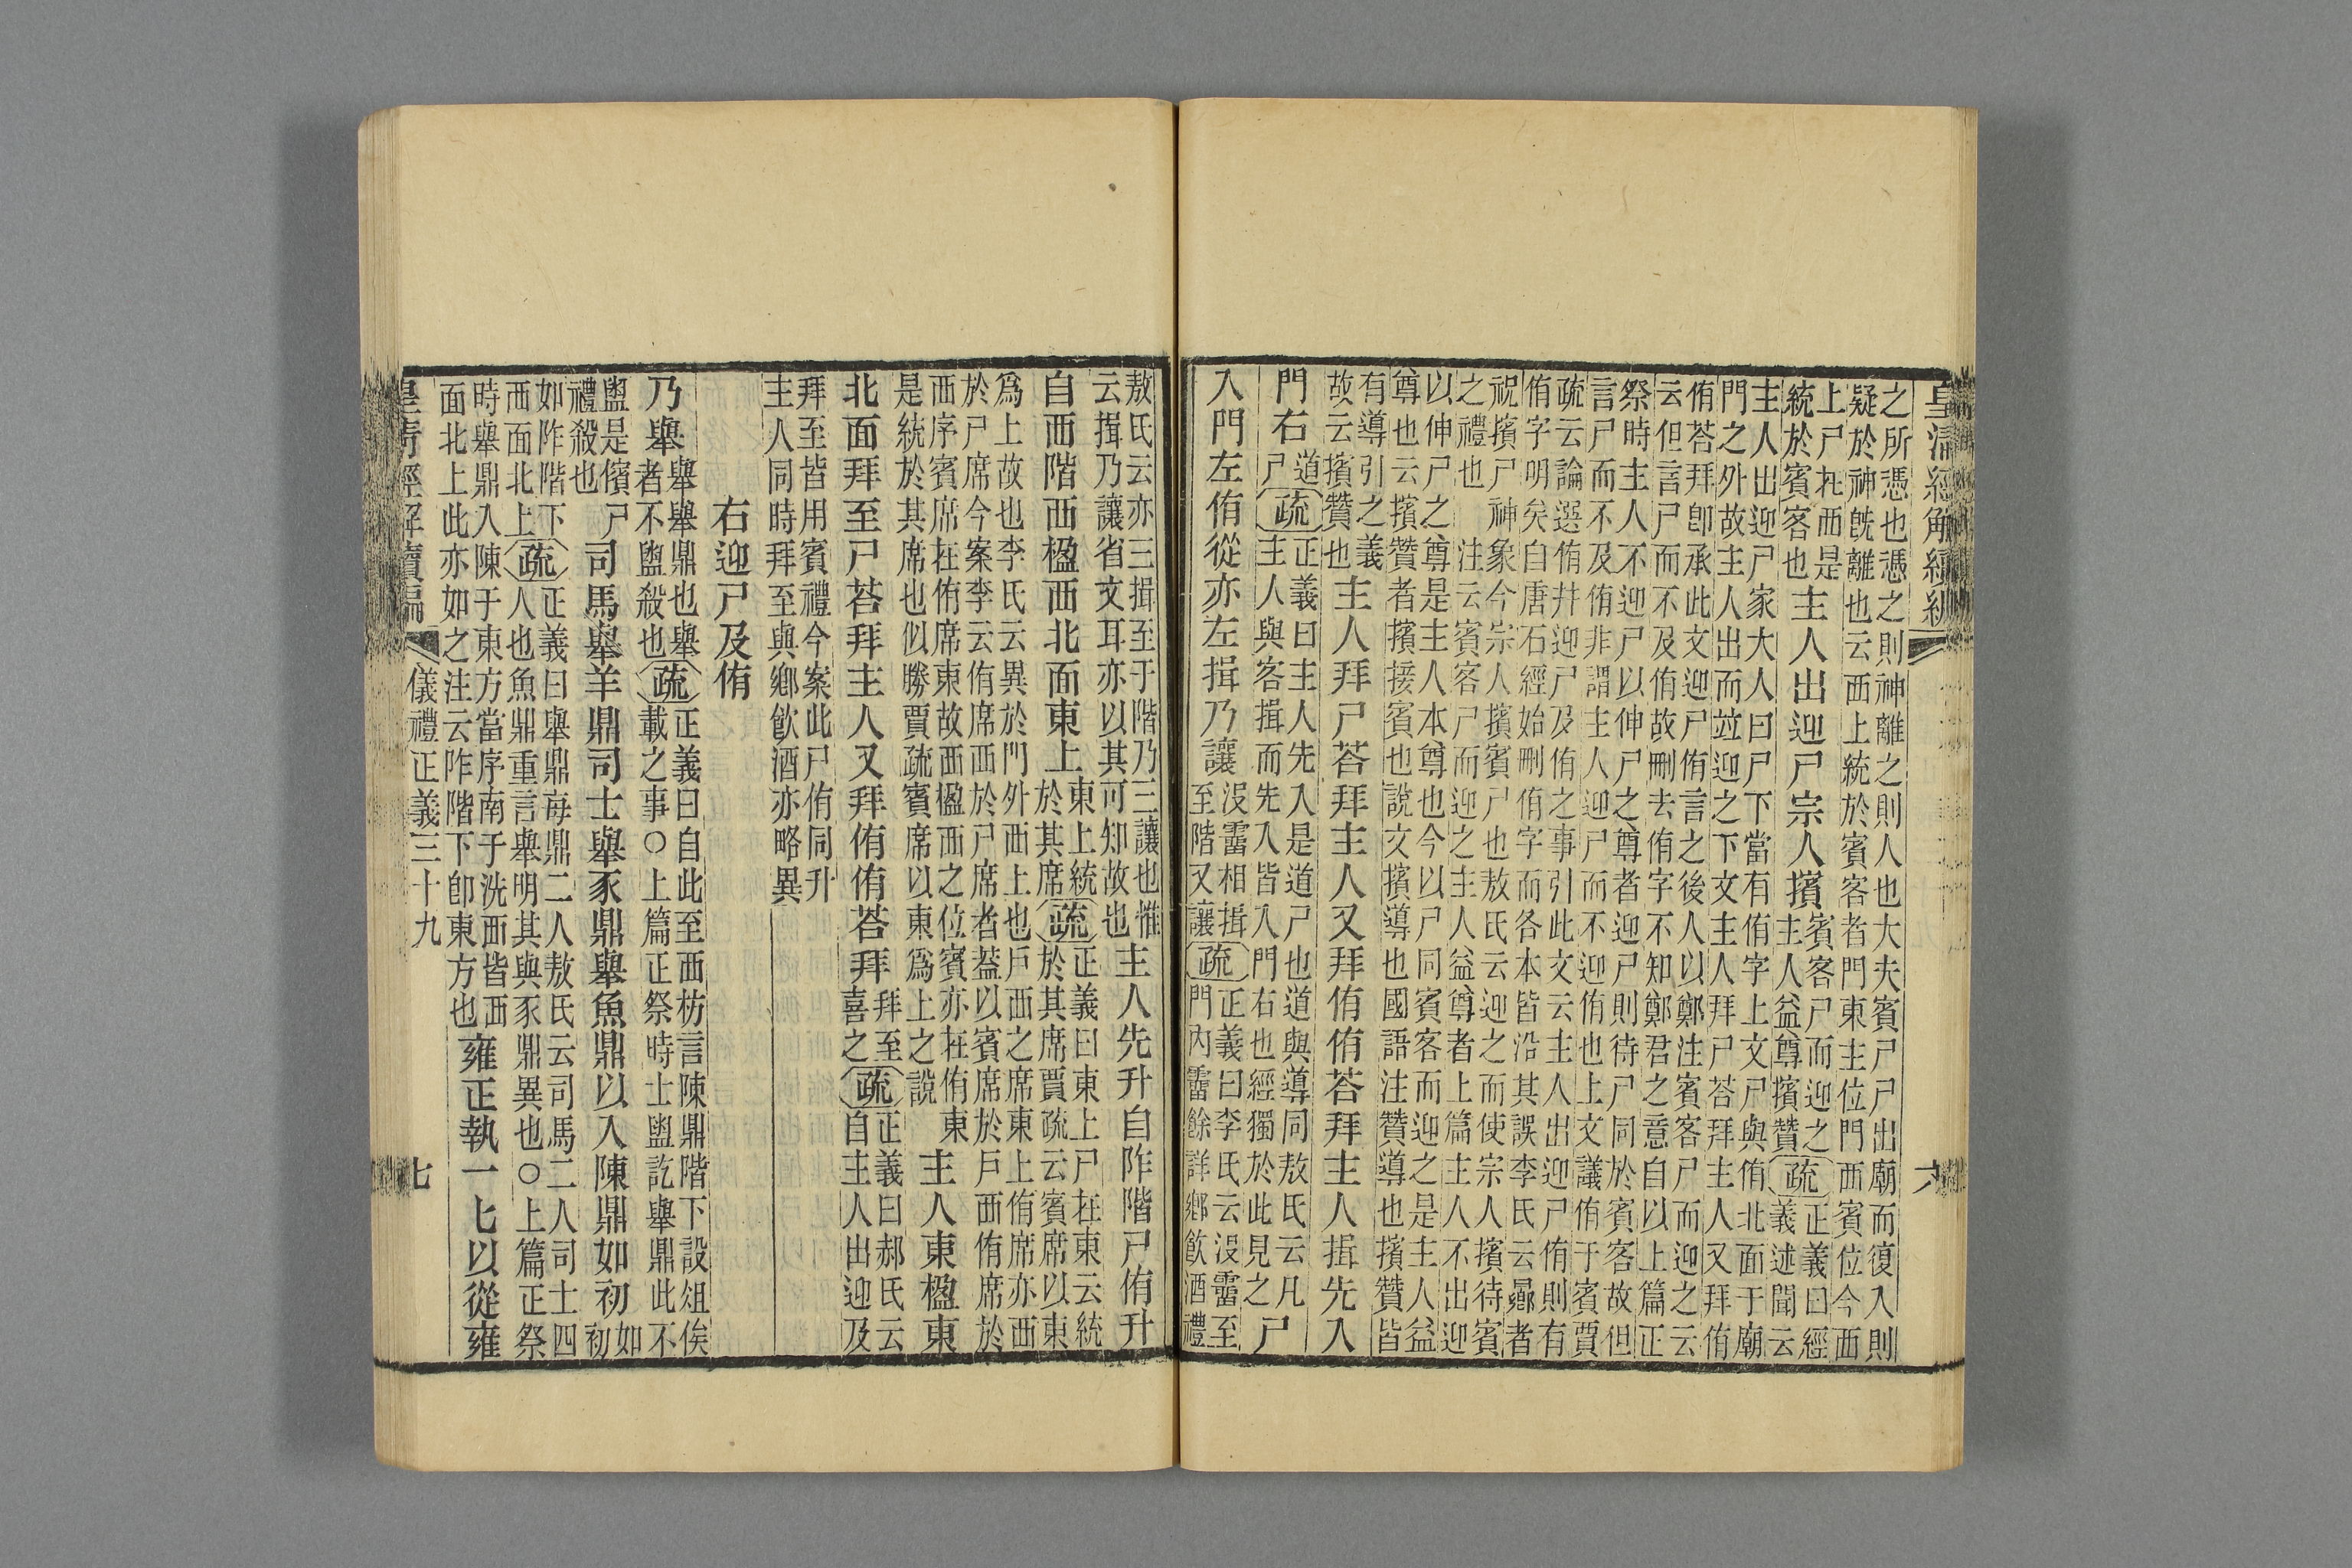 皇清經解續編
六
之所憑也憑之則神離之則人也大夫賓尸尸出廟而復入則
疑於神旣離也云西上統於賓客者門東主位門西賓位今西
上尸在西是
統於賓客也
主人出迎尸宗人擯
賓客尸而迎之
主人益尊擯贊
疏
正義曰經
義述聞云
主人出迎尸家大人曰尸下當有侑字上文尸與侑北面于廟
門之外故主人出而竝迎之下文主人拜尸荅拜主人又拜侑
侑荅拜卽承此文迎尸侑言之後人以鄭注賓客尸而迎之云
云但言尸而不及侑故刪去侑字不知鄭君之意自以上篇正
祭時主人不迎尸以伸尸之尊者迎尸則待尸同於賓客故但
言尸而不及侑非謂主人迎尸而不迎侑也上文議侑于賓賈
疏云論選侑幷迎尸及侑之事引此文云主人出迎尸侑則有
侑字明矣自唐石經始刪侑字而各本皆沿其誤李氏云曏者
祝擯尸神象今宗人擯賓尸也敖氏云迎之而使宗人擯待賓
之禮也　注云賓客尸而迎之主人益尊者上篇主人不出迎
以伸尸之尊是主人本尊也今以尸同賓客而迎之是主人益
尊也云擯贊者擯接賓也說文擯導也國語注贊導也擯贊皆
有導引之義
故云擯贊也
主人拜尸荅拜主人又拜侑侑荅拜主人揖先入
門右
道
尸
疏
正義曰主人先入是道尸也道與導同敖氏云凡
主人與客揖而先入皆入門右也經獨於此見之
尸
入門左侑從亦左揖乃讓
没霤相揖
至階又讓
疏
正義曰李氏云没霤至
門內霤餘詳鄉飮酒禮
敖氏云亦三揖至于階乃三讓也惟
云揖乃讓省文耳亦以其可知故也
主人先升自阼階尸侑升
自西階西楹西北面東上
東上統
於其席
疏
正義曰東上尸在東云統
於其席賈疏云賓席以東
爲上故也李氏云異於門外西上也戶西之席東上侑席亦西
於尸席今案李云侑席西於尸席者葢以賓席於戶西侑席於
西序賓席在侑席東故西楹西之位賓亦在侑東
是統於其席也似勝賈疏賓席以東爲上之說
主人東楹東
北面拜至尸荅拜主人又拜侑侑荅拜
拜至
喜之
疏
正義曰郝氏云
自主人出迎及
拜至皆用賓禮今案此尸侑同升
主人同時拜至與鄉飮酒亦略異
右迎尸及侑
乃舉
舉舉鼎也舉
者不盥殺也
疏
正義曰自此至西枋言陳鼎階下設俎俟
載之事○上篇正祭時士盥訖舉鼎此不
盥是儐尸
禮殺也
司馬舉羊鼎司士舉豕鼎舉魚鼎以入陳鼎如初
如
初
如阼階下
西面北上
疏
正義曰舉鼎每鼎二人敖氏云司馬二人司士四
人也魚鼎重言舉明其與豕鼎異也○上篇正祭
時舉鼎入陳于東方當序南于洗西皆西
面北上此亦如之注云阼階下卽東方也
雍正執一匕以從雍
皇清經解續編
儀禮正義三十九
七